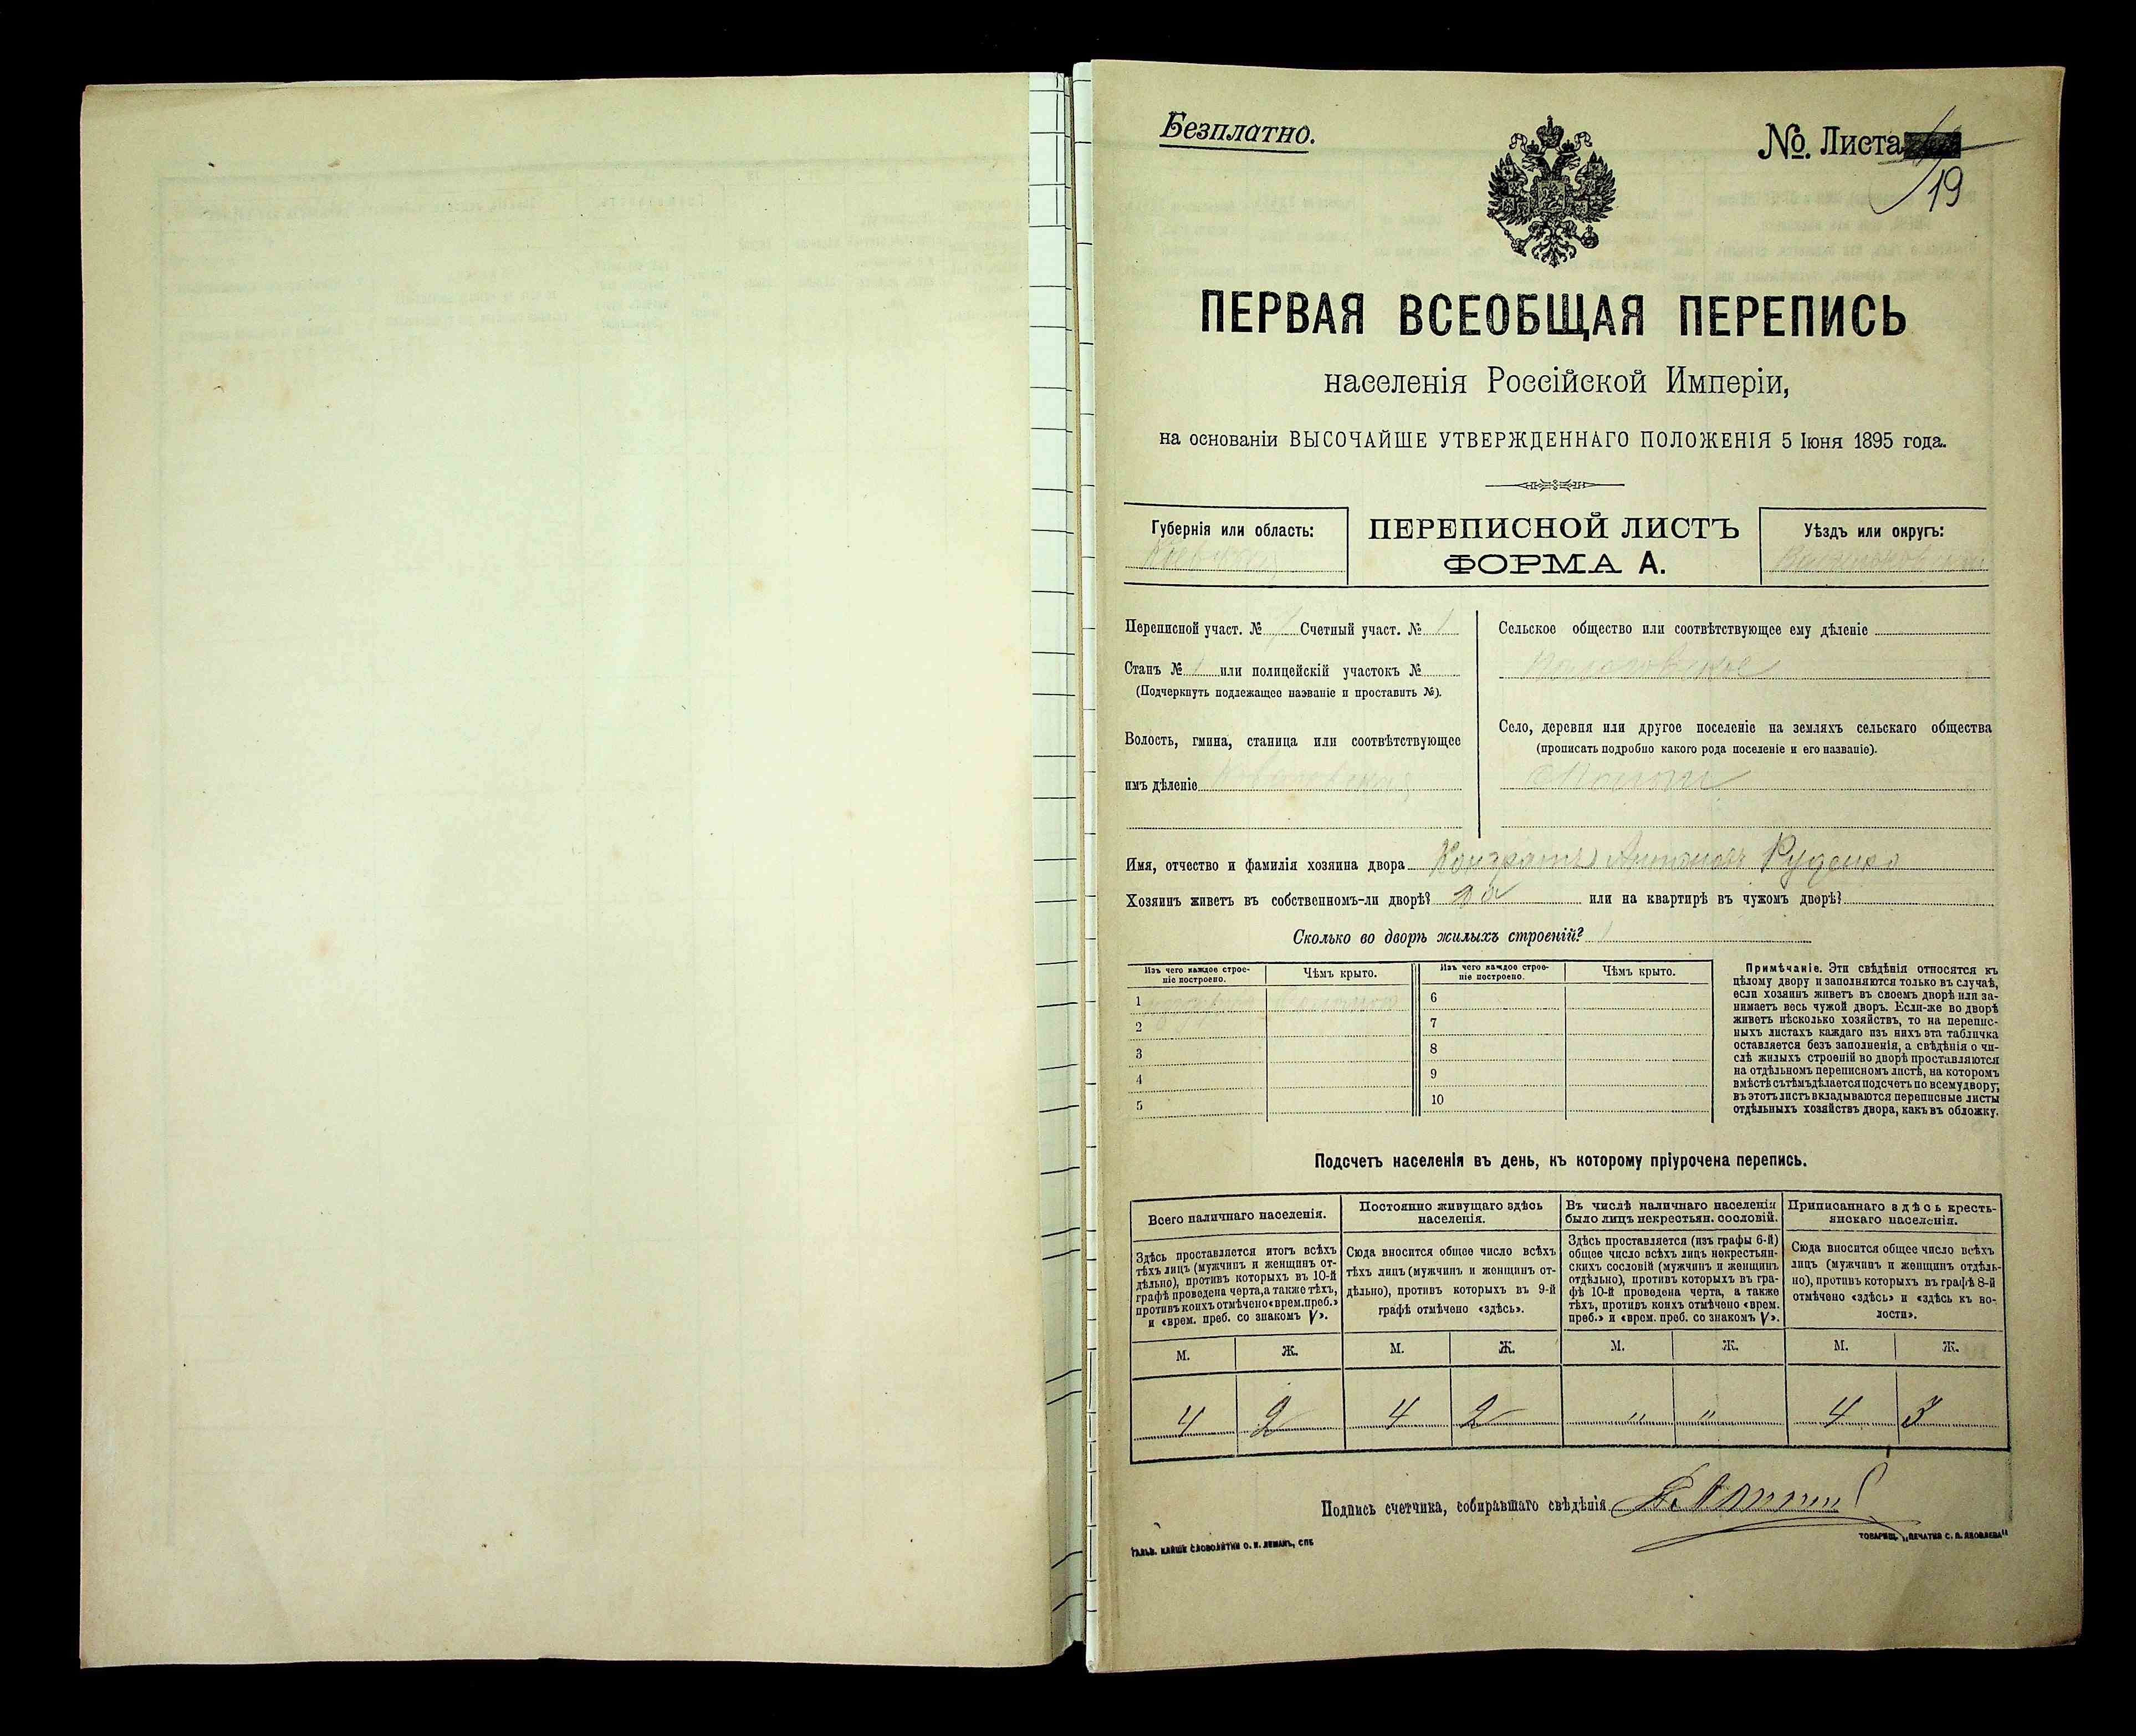 Безплатно.
№. Листа
19
ПЕРВАЯ ВСЕОБЩАЯ ПЕРЕПИСЬ
населенія Россійской Имперіи,
на основаніи ВЫСОЧАЙШЕ УТВЕРЖДЕННАГО ПОЛОЖЕНІЯ 5 Іюня 1895 года.
Губернія или область:
Кіевская
ПЕРЕПИСНОЙ ЛИСТЪ
ФОРМА А.
Уѣздъ или округъ:
Васильковскій
Переписной участ. № 7 Счетный участ. № 1
Станъ № 1 или полицейскій участокъ №
(Подчеркнуть подлежащее названіе и проставить №).
Волость, гмина, станица или соотвѣтствующее
имъ дѣленіе
Сельское общество или соотвѣтствующее ему дѣленіе
Село, деревня или другое поселеніе на земляхъ сельскаго общества
(прописать подробно какого рода поселеніе и его названіе).
Имя, отчество и фамилія хозяина двора Кондратъ Антоновъ Руденко
Хозяинъ живетъ въ собственномъ-ли дворѣ? да или на квартирѣ въ чужомъ дворѣ?
Сколько во дворѣ жилыхъ строеній? 1
Изъ чего каждое строе-
ніе построено.
Чѣмъ крыто.
Изъ чего каждое строе-
ніе построено.
Чѣмъ крыто.
1 Соломою
2
3
4
5
6
7
8
9
10
Примѣчаніе. Эти свѣдѣнія относятся къ
цѣлому двору и заполняются только въ случаѣ,
если хозяинъ живетъ въ своемъ дворѣ или за-
нимаетъ весь чужой дворъ. Если-же во дворѣ
живетъ нѣсколько хозяйствъ, то на перепис-
ныхъ листахъ каждаго изъ нихъ эта табличка
оставляется безъ заполненія, а свѣдѣнія о чи-
слѣ жилыхъ строеній во дворѣ проставляются
на отдѣльномъ переписномъ листѣ, на которомъ
вмѣстѣ съ тѣмъ дѣлается подсчетъ по всему двору;
въ этотъ листъ вкладываются переписные листы
отдѣльныхъ хозяйствъ двора, какъ въ обложку.
Подсчетъ населенія въ день, къ которому пріурочена перепись.
Всего наличнаго населенія.
Здѣсь проставляется итогъ всѣхъ
тѣхъ лицъ (мужчинъ и женщинъ от-
дѣльно), противъ которыхъ въ 10-й
графѣ проведена черта, а также тѣхъ,
противъ коихъ отмѣчено «врем. преб.»
и «врем. преб. со знакомъ V».
Постоянно живущаго здѣсь
населенія.
Сюда вносится общее число всѣхъ
тѣхъ лицъ (мужчинъ и женщинъ от-
дѣльно), противъ которыхъ въ 9-й
графѣ отмѣчено «здѣсь».
Въ числѣ наличнаго населенія
было лицъ некрестьян. сословій.
Здѣсь проставляется (изъ графы 6-й)
общее число всѣхъ лицъ некрестьян-
скихъ сословій (мужчинъ и женщинъ
отдѣльно), противъ которыхъ въ гра-
фѣ 10-й проведена черта, а также
тѣхъ, противъ коихъ отмѣчено «врем.
преб.» и «врем. преб. со знакомъ V».
Приписаннаго здѣсь кресть-
янскаго населенія.
Сюда вносится общее число всѣхъ
лицъ (мужчинъ и женщинъ отдѣль-
но), противъ которыхъ въ графѣ 8-й
отмѣчено «здѣсь» и «здѣсь къ во-
лости».
М. Ж. М. Ж. М. Ж. М. Ж.
4 2 4 2 " " 4 3
Подпись счетчика, собиравшаго свѣдѣнія
ГАЛЬВ. КЛИШЕ СЛОВОЛИТНИ О. И. ЛЕМАНЪ, СПБ
ТОВАРИЩ. „ПЕЧАТНЯ С. П. ЯКОВЛЕВА"